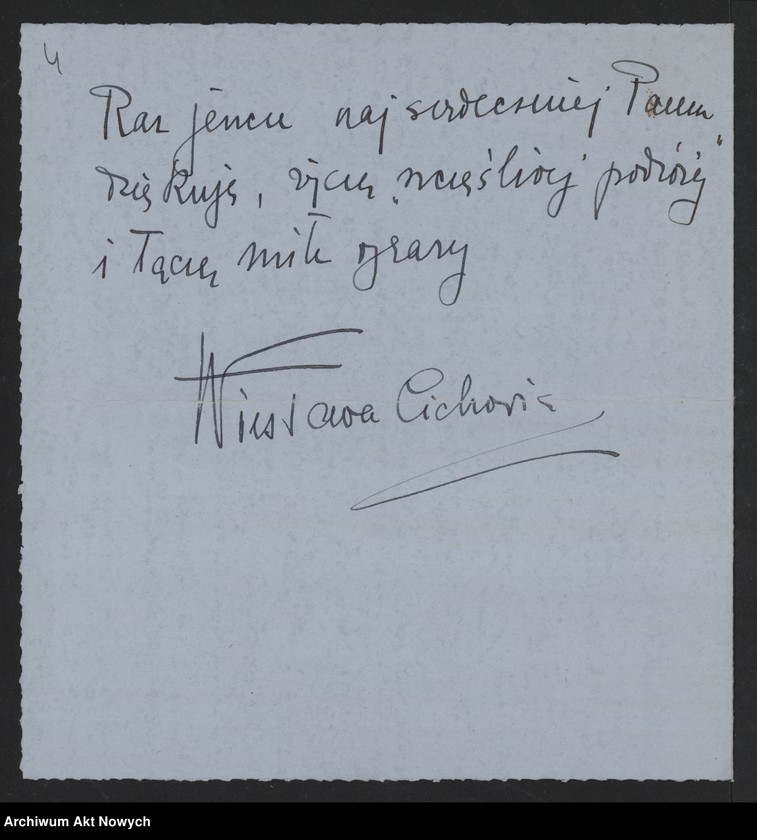 4
Raz jeszcze najserdeczniej Panu
dziękuję, życzę „szczęśliwej podróży"
i łączę miłe wyrazy
Wiesława Cichowicz
Archiwum Akt Nowych